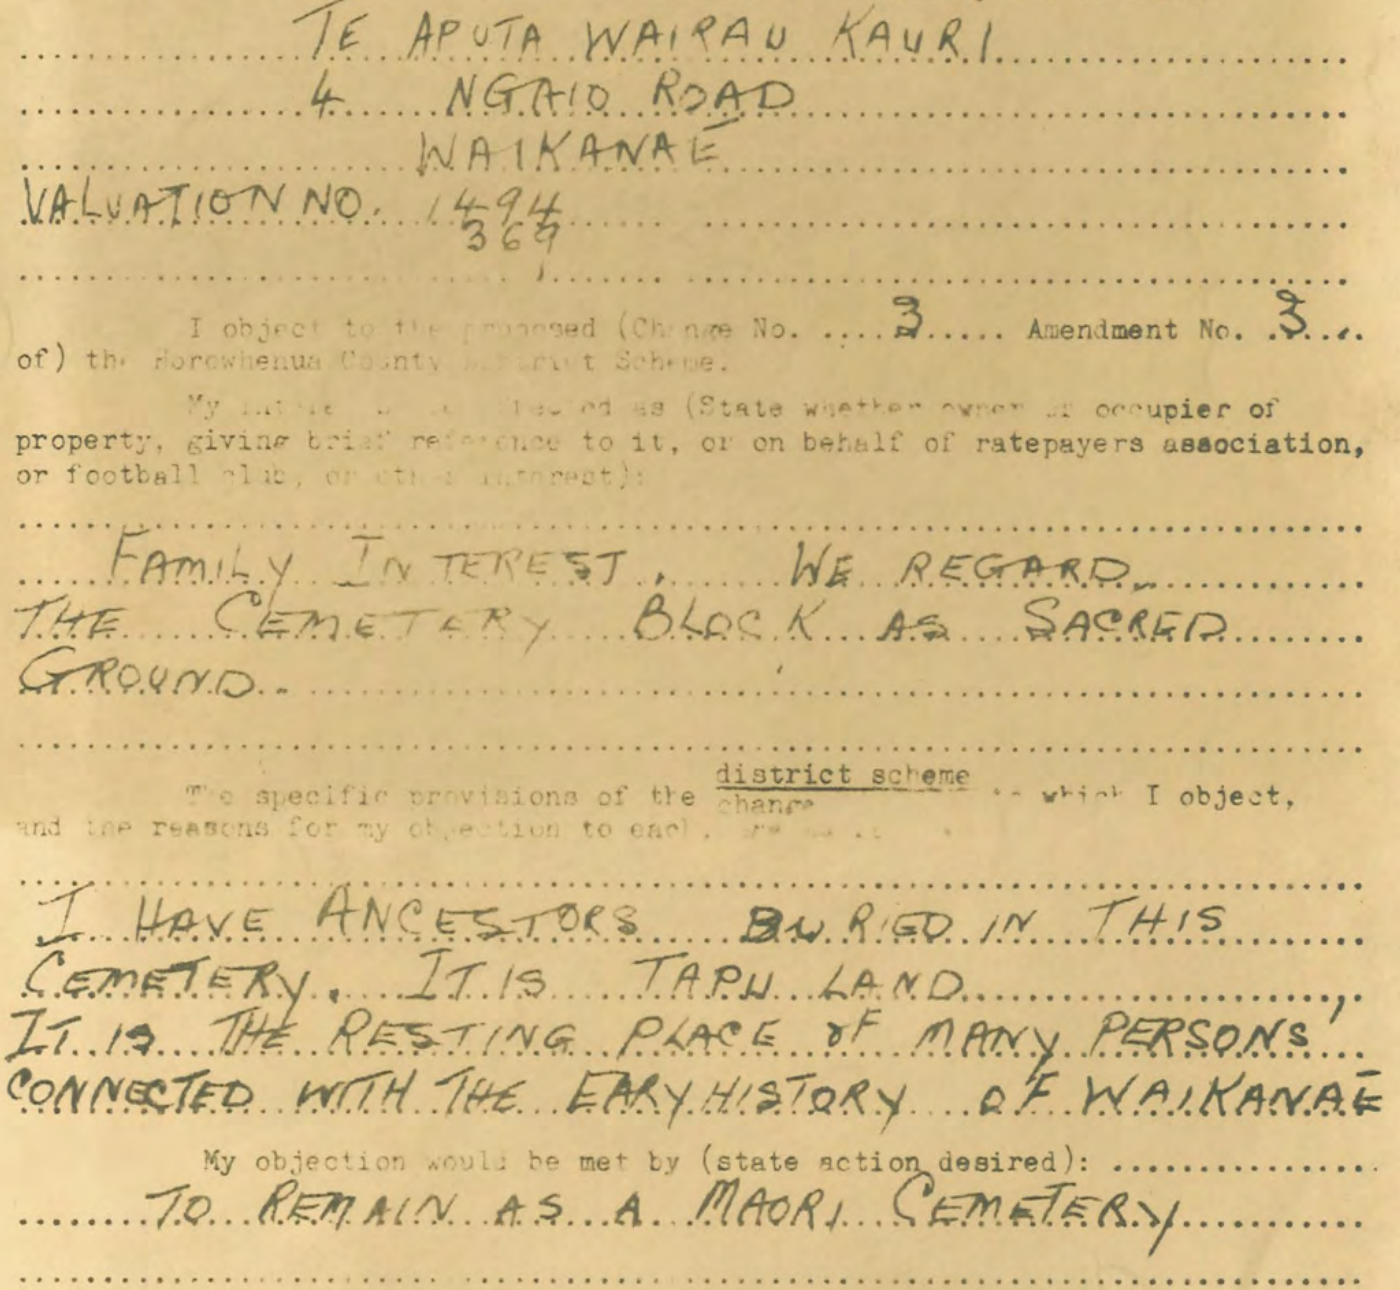 TE APUTA WAIRAU KAURI
4 NGAIO ROAD
WAIKANAE
VALUATION NO. 1494
369
I object to the proposed (Change No. ....3..... Amendment No. .3...
of) the Horowhenua County District Scheme.
My as (State whether owner or occupier of
property, giving brief reference to it, or on behalf of ratepayers association,
or football club, or other interest):
FAMILY INTEREST. WE REGARD
THE CEMETERY BLOCK AS SACRED
GROUND.
The specific provisions of the district scheme
change to which I object,
and the reasons for my objection to each, are
I HAVE ANCESTORS BURIED IN THIS
CEMETERY. IT IS TAPU LAND
IT IS THE RESTING PLACE OF MANY PERSONS'
CONNECTED WITH THE EARY HISTORY OF WAIKANAE
My objection would be met by (state action desired): ................
TO REMAIN AS A MAORI CEMETERY